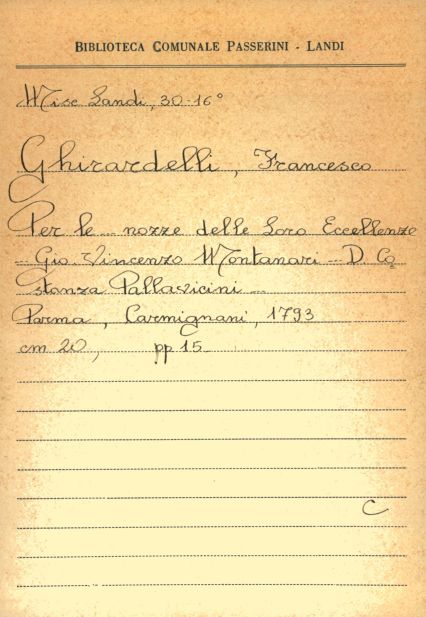 BIBLIOTECA COMUNALE PASSERINI - LANDI
Misc Landi, 30-16°
Ghirardelli, Francesco
Per le ... nozze delle Loro Eccellenze
... Gio. Vincenzo Montanari ... D. Co
stanza Pallavicini ...
Parma, Carmignani, 1793
cm 20, pp 15
C